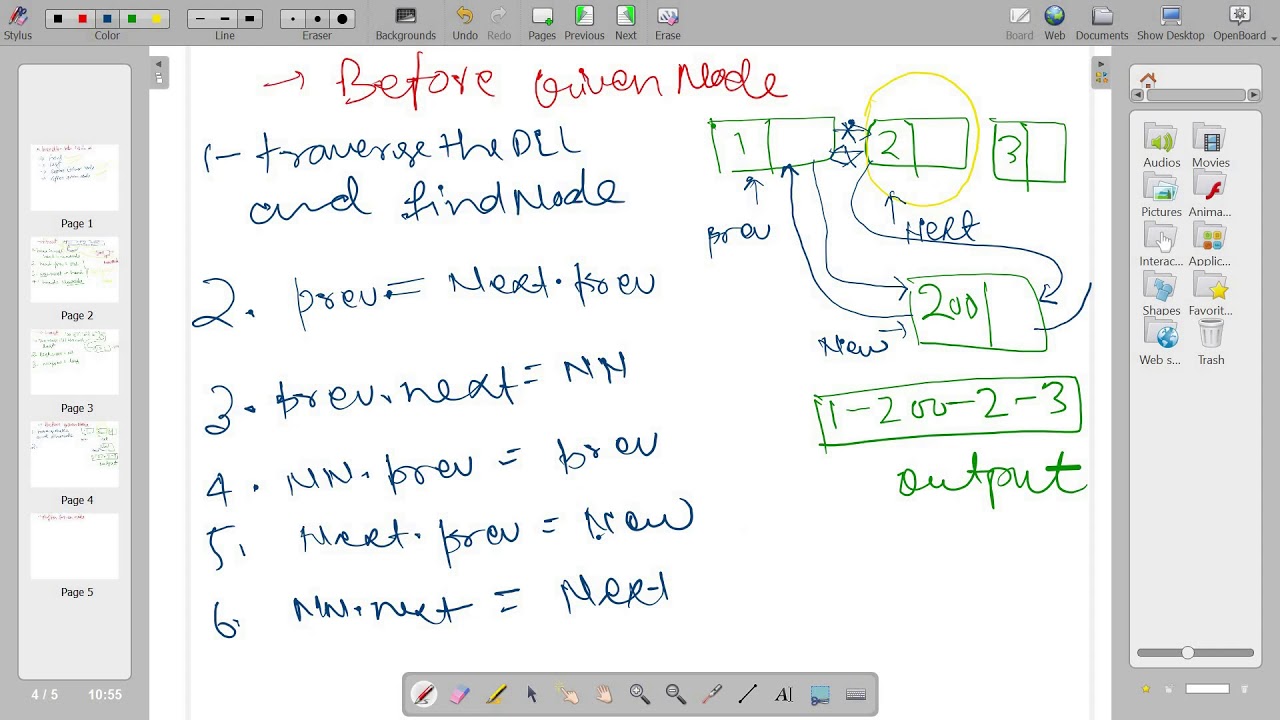 Stylus
Color
Line
Eraser
Backgrounds
Undo
Redo
Pages
Previous
Next
Erase
Board
Web
Documents
Show Desktop
OpenBoard
Page 1
Page 2
Page 3
Page 4
Page 5
4 / 5
10:55
→ Before Given Node
1- traverse the DLL
and find Node
2. prev = Next.prev
3. prev.next = NN
4. NN.prev = prev
5. Next.prev = New
6. NN.next = Next
1
2
3
prev
Next
200
New
1-200-2-3
output
Audios
Movies
Pictures
Anima...
Interac...
Applic...
Shapes
Favorit...
Web s...
Trash
A